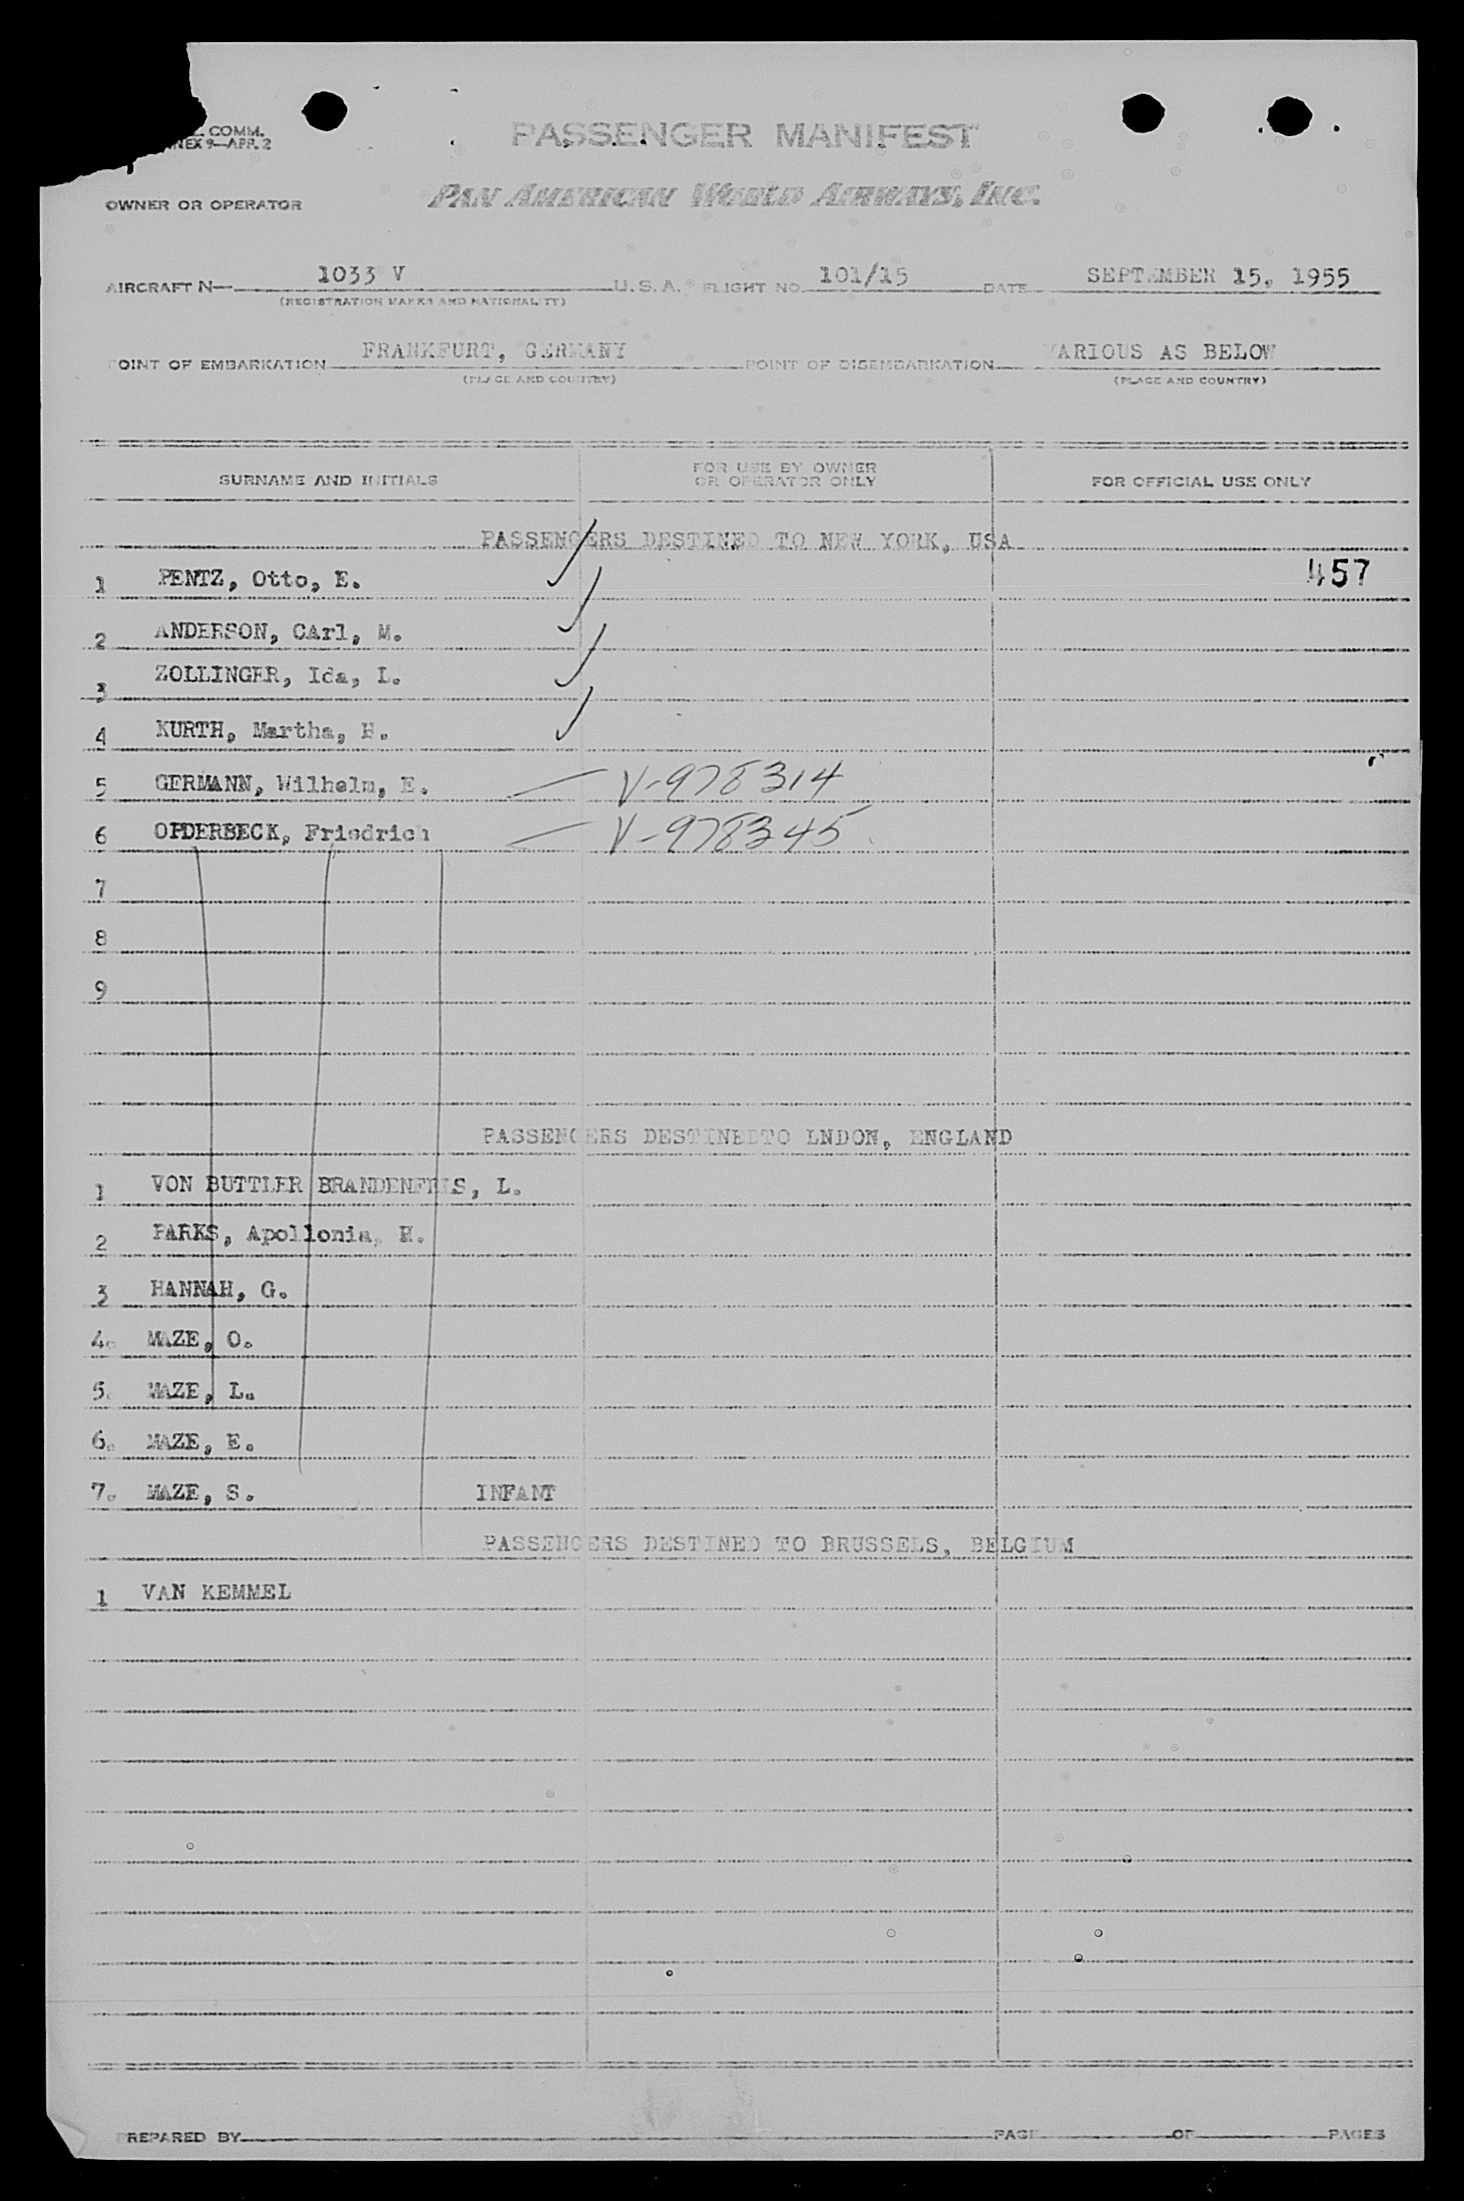 COMM.
NEX 9—APR. 2
PASSENGER MANIFEST
OWNER OR OPERATOR
PAN AMERICAN WORLD AIRWAYS, INC.
AIRCRAFT N— 1033 V U. S. A. FLIGHT NO. 101/15 DATE SEPTEMBER 15, 1955
(REGISTRATION MARKS AND NATIONALITY)
POINT OF EMBARKATION FRANKFURT, GERMANY POINT OF DISEMBARKATION VARIOUS AS BELOW
(PLACE AND COUNTRY) (PLACE AND COUNTRY)
SURNAME AND INITIALS FOR USE BY OWNER OR OPERATOR ONLY FOR OFFICIAL USE ONLY
PASSENGERS DESTINED TO NEW YORK, USA
1 PENTZ, Otto, E. 457
2 ANDERSON, CArl, M.
3 ZOLLINGER, Ida, L.
4 KURTH, Martha, H.
5 GERMANN, Wilhelm, E. V-978314
6 OPDERBECK, Friedrich V-978345
7
8
9
PASSENGERS DESTINEDTO LNDON, ENGLAND
1 VON BUTTLER L.
2 PARKS, Apollonia, H.
3 HANNAH, G.
4. MAZE, O.
5. MAZE, L.
6. MAZE, E.
7. MAZE, S. INFANT
PASSENGERS DESTINED TO BRUSSELS, BELGIUM
1 VAN KEMMEL
PREPARED BY PAGE OF PAGES